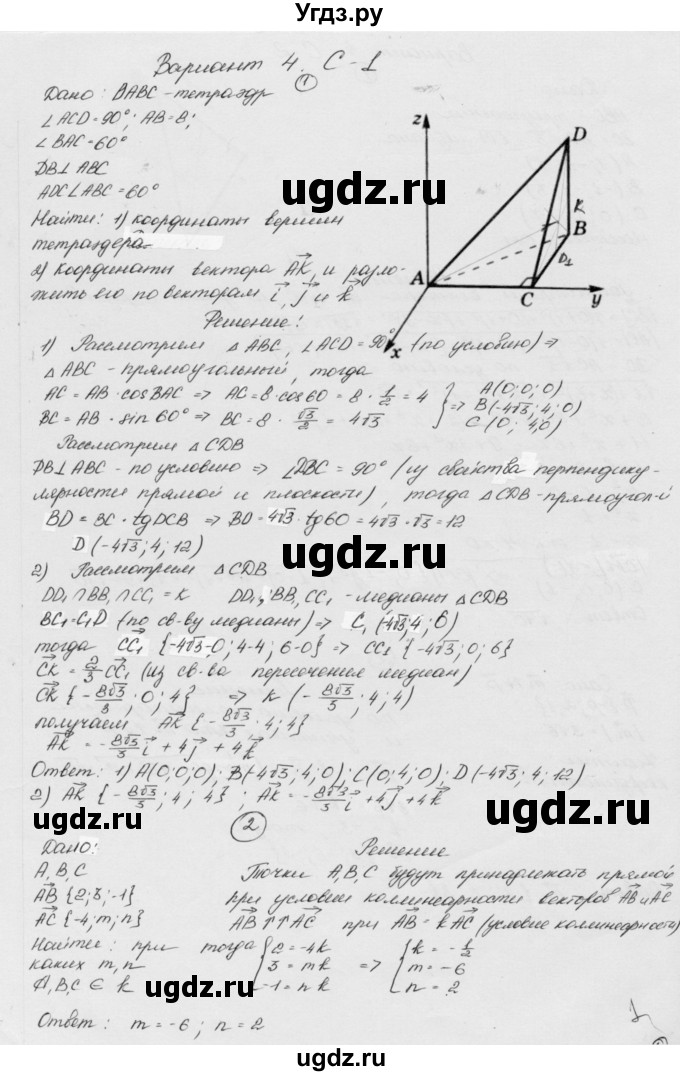 Угдз.ру
Вариант 4. С-1
①
Дано: DABC - тетраэдр
∠ACD = 90°; AB = 8;
∠BAC = 60°
DB⊥ABC
ADC∠ABC = 60°
Найти: 1) координаты вершин
тетраэдера
2) координаты вектора AK→, и разло-
жить его по векторам i→, j→ и k→
z
D
K
B
D₁
A
C
y
x
ugdz.ru
Решение:
1) Рассмотрим △ABC, ∠ACD = 90° (по условию) ⇒
△ABC - прямоугольный, тогда
AC = AB · cosBAC ⇒ AC = 8 · cos60 = 8 · 1/2 = 4
BC = AB · sin 60° ⇒ BC = 8 · √3/2 = 4√3
} ⇒ A(0; 0; 0)
B(-4√3; 4; 0)
C(0; 4,0)
Рассмотрим △CDB
DB⊥ABC - по условию ⇒ ∠DBC = 90° (из свойства перпендику-
лярности прямой и плоскости), тогда △CDB - прямоугол-й
BD = BC · tgDCB ⇒ BD = 4√3 · tg60 = 4√3 · √3 = 12
D(-4√3; 4; 12)
2) Рассмотрим △CDB
DD₁ ∩ BB₁ ∩ CC₁ = K DD₁, BB₁, CC₁ - медианы △CDB
BC₁ = C₁D (по св-ву медианы) ⇒ C₁(-4√3; 4; 6)
тогда CC₁→ {-4√3-0; 4-4; 6-0} ⇒ CC₁ {-4√3; 0; 6}
CK→ = 2/3 CC₁→ (из св-ва пересечения медиан)
CK→ {-8√3/3; 0; 4} ⇒ K(-8√3/3; 4; 4)
получаем AK→ {-8√3/3; 4; 4}
AK→ = -8√3/3 i→ + 4j→ + 4k→
Ответ: 1) A(0; 0; 0); B(-4√3; 4; 0); C(0; 4; 0); D(-4√3; 4; 12)
2) AK→ {-8√3/3; 4; 4}; AK→ = -8√3/3 i→ + 4j→ + 4k→
②
Дано:
A, B, C
AB→ {2; 3; -1}
AC→ {-4; m; n}
Найти: при
каких m, n
A, B, C ∈ k
Решение
Точки A, B, C будут принадлежать прямой
при условие коллинеарности векторов AB→ и AC→
AB→ ↑↑ AC→ при AB = kAC→ (условие коллинеарности)
тогда { 2 = -4k
3 = mk
-1 = nk
⇒ { k = -1/2
m = -6
n = 2
Ответ: m = -6; n = 2
ugdz.ru
ugdz.ru
ugdz.ru
ugdz.ru
ugdz.ru
ugdz.ru
ugdz.ru
ugdz.ru
ugdz.ru
ugdz.ru
ugdz.ru